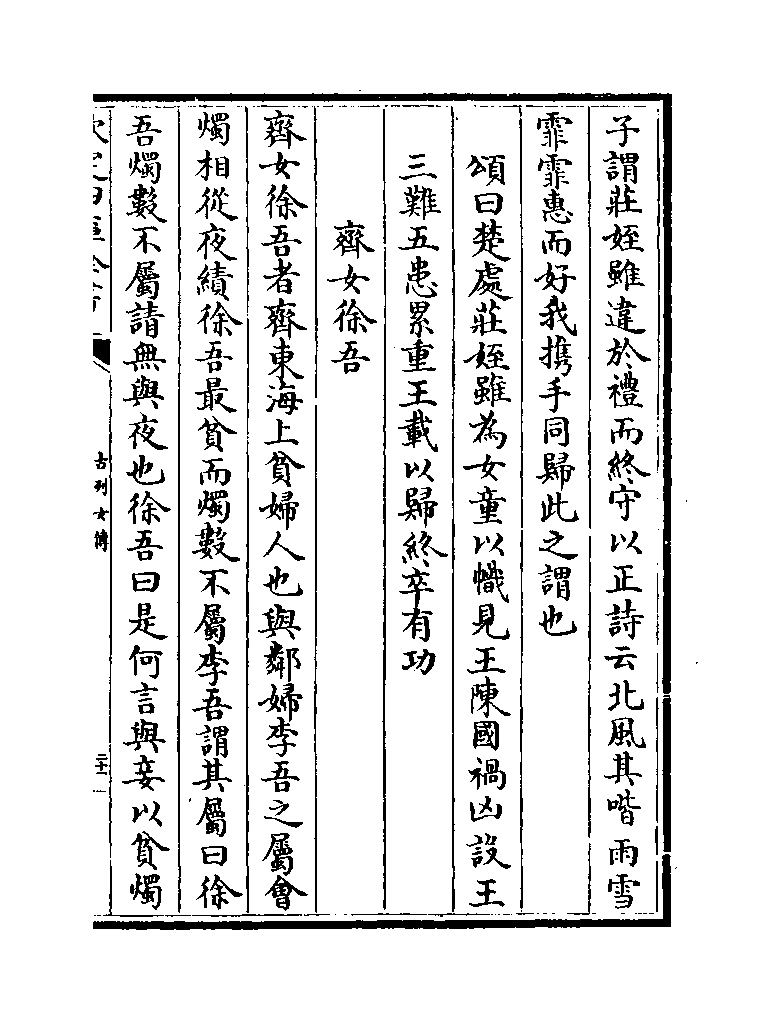 子謂莊姪雖違於禮而終守以正詩云北風其喈雨雪
霏霏惠而好我携手同歸此之謂也
頌曰楚處莊姪雖為女童以幟見王陳國禍凶設王
三難五患累重王載以歸終卒有功
齊女徐吾
齊女徐吾者齊東海上貧婦人也與鄰婦李吾之屬會
燭相從夜績徐吾最貧而燭數不屬李吾謂其屬曰徐
吾燭數不屬請無與夜也徐吾曰是何言與妾以貧燭
古列女傳